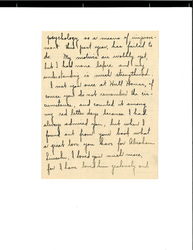 psychology as a means of improve-
ment this past year, has failed to
do. My motives are worthy yet,
but I hold more hopes and my
understanding is much strengthened.
I met you once at Hull House, of
course you do not remember the cir-
cumstance, and counted it among
my red letter days because I had
always admired you, but when I
found out from your book what
a great love you have for Abraham
Lincoln, I loved you much more,
for I have loved him zealously and